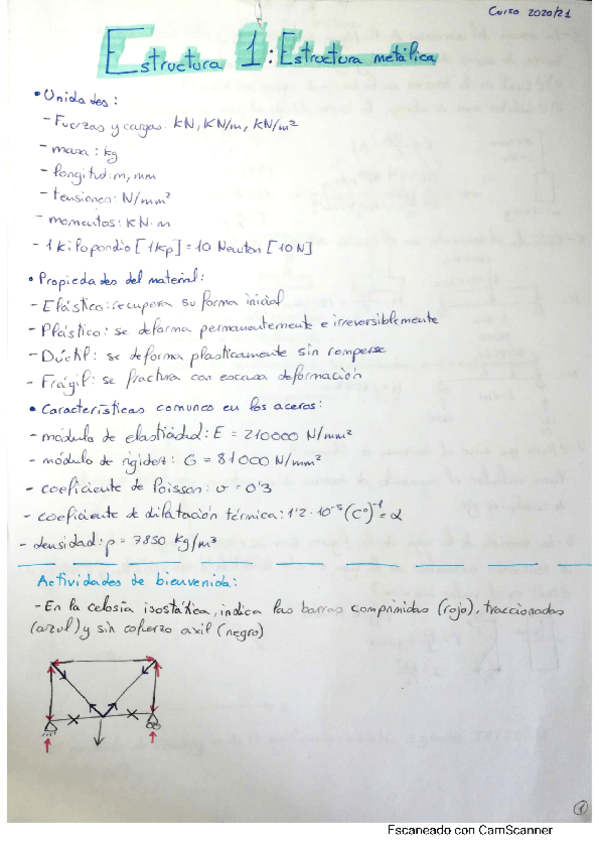 Curso 2020/21
Estructura 1: Estructura metálica
• Unidades:
- Fuerzas y cargas: kN, KN/m, kN/m²
- masa: kg
- longitud: m, mm
- tensiones: N/mm²
- momentos: KN·m
- 1 kilopondio [1Kp] = 10 Newton [10N]
• Propiedades del material:
- Elástico: recupera su forma inicial
- Plástico: se deforma permanentemente e irreversiblemente
- Dúctil: se deforma plasticamente sin romperse
- Frágil: se fractura con escasa deformación
• Características comunes en los aceros:
- módulo de elasticidad: E = 210000 N/mm²
- módulo de rigidez: G = 81000 N/mm²
- coeficiente de Poisson: υ = 0'3
- coeficiente de dilatación térmica: 1'2·10⁻⁵ (Cº)⁻¹ = α
- densidad: ρ = 7850 kg/m³
Actividades de bienvenida:
- En la celosía isostática, indica las barras comprimidas (rojo), traccionadas
(azul) y sin esfuerzo axil (negro)
1
Escaneado con CamScanner